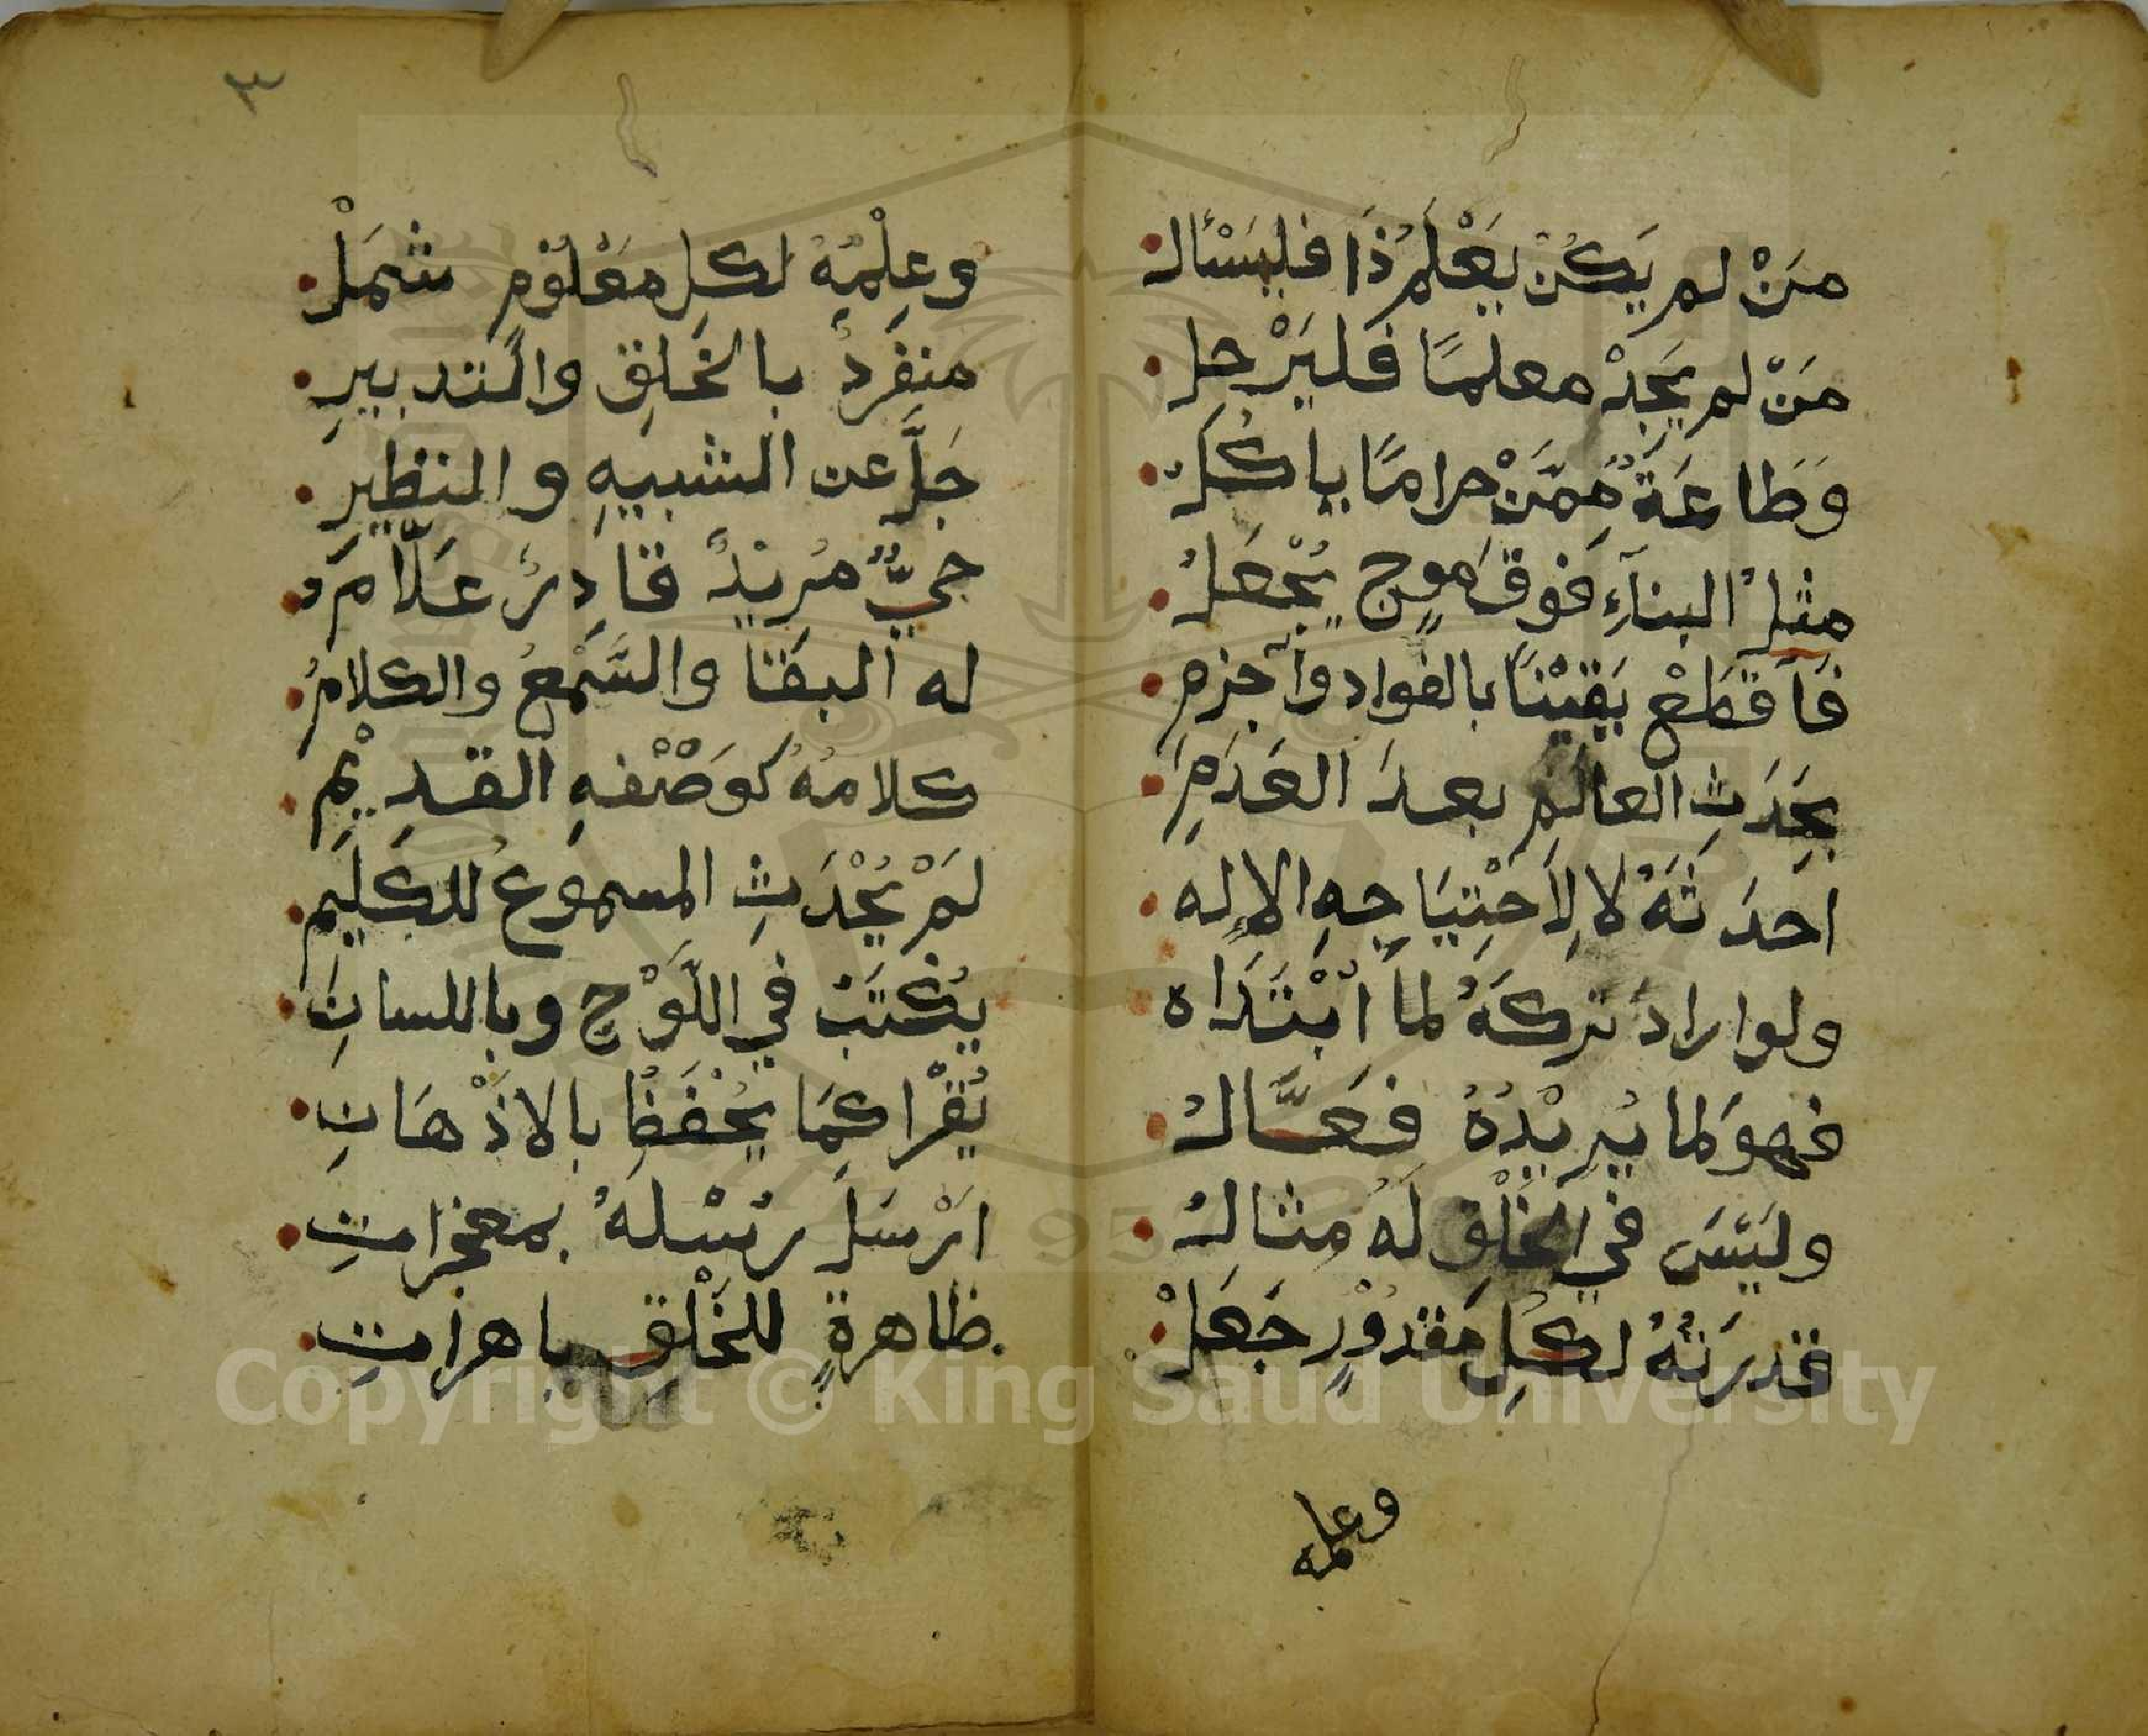 مَنْ لم يَكُنْ يَعْلَمُ ذَا فليَسْئَال
مَنْ لم يَجِدْ معلمًا فَليَرْحل
وَطَاعَةٌ مِمَّنْ حرامًا ياكُلُ
مثلُ البنآءِ فَوقَ مَوجٍ يُجْعَلُ
فَاَقطَعْ يَقِيْنًا بالفواد وَاَجزم
بِحَدَثِ العالَمِ بعدَ العَدَمِ
احدَثَهُ لا لِاَحْتِيَاجِهِ الاله
ولو ارادَ تركَهُ لما ابْتَدَاه
فهوَ لما يُرِيْدُهُ فَعَّالُ
وليَسَ في الخَلْقِ لَهُ مثالُ
قدرَتُهُ لكُلِ مَقدوْرٍ جَعَلْ
وعلمه
٣
وعِلْمُهُ لكلِ مَعْلُوْمٍ شَمَلْ
منفَردٌ بالخَلقِ والتدبيرِ
جَلَّ عن الشبيهِ والنظيرِ
حيٌّ مُريْدٌ قادِرٌ عَلَّامُ
له البقَا والسَّمْعُ والكلامُ
كلامُهُ كَوَصْفهِ القديْمِ
لَمْ يُحْدَثِ المسموعُ للكَلِيمِ
يُكْتَبُ في اللَّوْحِ وباللسانِ
يُقْرَا كمَا يُحْفَظُ بالاذْهَانِ
ارْسَلَ رُسْلَهُ بمعجزاتِ
ظاهرةٍ للخَلْقِ باهراتِ
Copyright © King Saud University